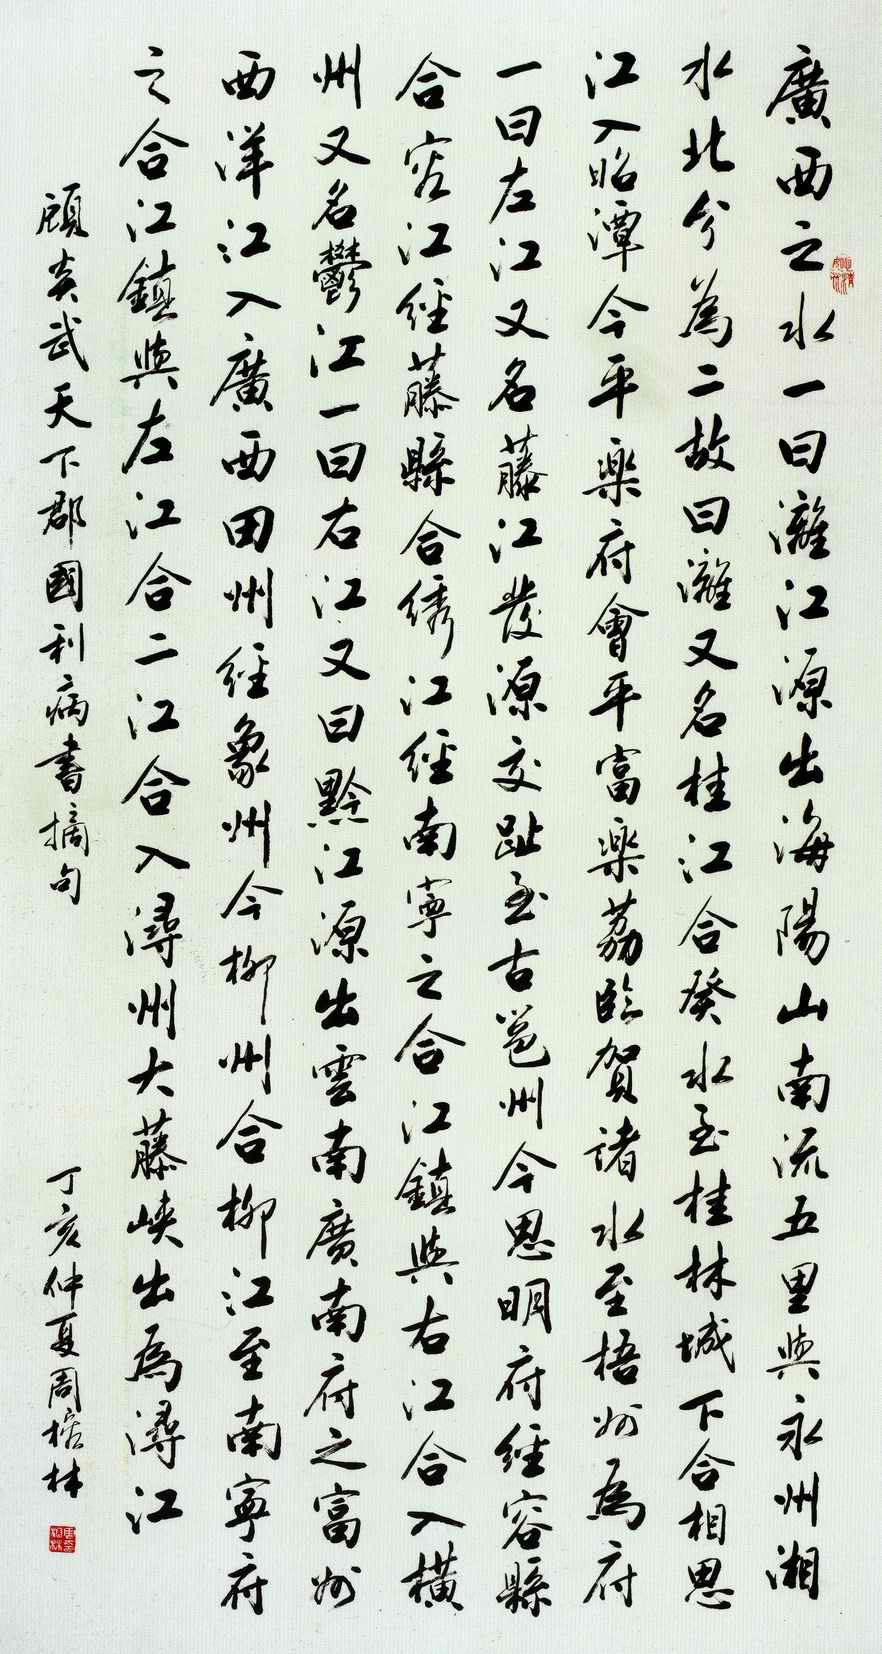 廣西之水一曰灕江源出海陽山南流五里與永州湘
水北分為二故曰灕又名桂江合癸水至桂林城下合相思
江入昭潭今平樂府會平富樂荔臨賀諸水至梧州為府
一曰左江又名藤江發源交趾至古邕州今思明府經容縣
合容江經藤縣合綉江經南寧之合江鎮與右江合入橫
州又名鬱江一曰右江又曰黔江源出雲南廣南府之富州
西洋江入廣西田州經象州今柳州合柳江至南寧府
之合江鎮與左江合二江合入潯州大藤峽出為潯江
顧炎武天下郡國利病書摘句
丁亥仲夏周榕林